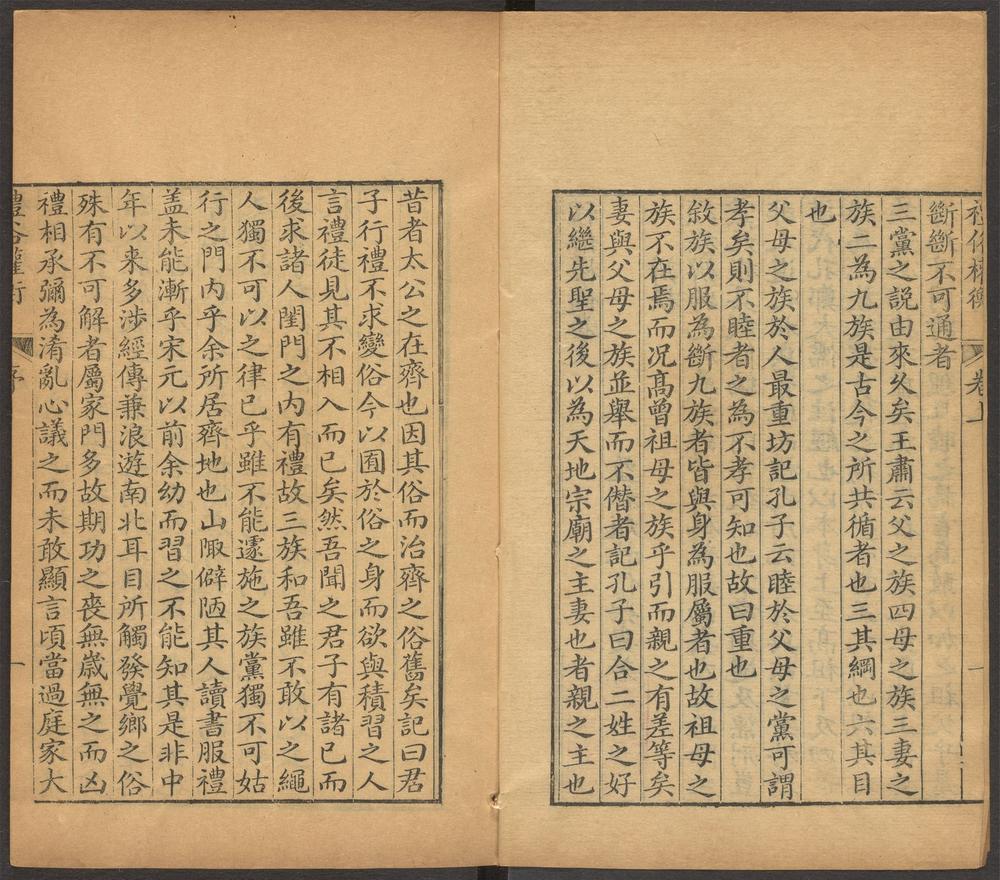 禮俗權衡　卷上　一
斷斷不可通者
三黨之説由來久矣王肅云父之族四母之族三妻之
族二為九族是古今之所共循者也三其綱也六其目
也
父母之族於人最重坊記孔子云睦於父母之黨可謂
孝矣則不睦者之為不孝可知也故曰重也
敘族以服為斷九族者皆與身為服屬者也故祖母之
族不在焉而况高曾祖母之族乎引而親之有差等矣
妻與父母之族並舉而不僭者記孔子曰合二姓之好
以繼先聖之後以為天地宗廟之主妻也者親之主也
昔者太公之在齊也因其俗而治齊之俗舊矣記曰君
子行禮不求變俗今以囿於俗之身而欲與積習之人
言禮徒見其不相入而已矣然吾聞之君子有諸已而
後求諸人閨門之内有禮故三族和吾雖不敢以之繩
人獨不可以之律已乎雖不能遽施之族黨獨不可姑
行之門内乎余所居齊地也山陬僻陋其人讀書服禮
盖未能漸乎宋元以前余幼而習之不能知其是非中
年以来多涉經傳兼浪遊南北耳目所觸發覺鄉之俗
殊有不可解者屬家門多故期功之喪無歲無之而凶
禮相承彌為淆亂心議之而未敢顯言頃當過庭家大
禮俗權衡　序　一